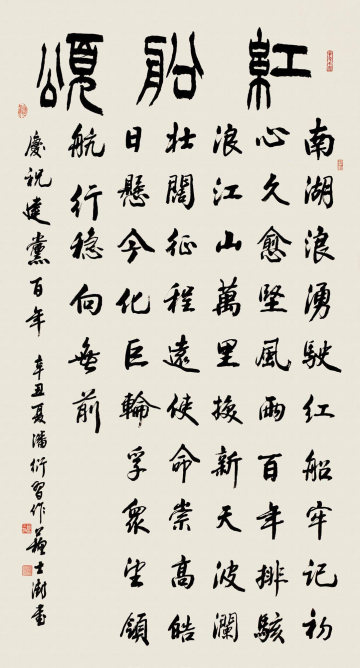 紅船頌
南湖浪湧駛红船牢记初
心久愈坚風雨百年排駭
浪江山萬里換新天波瀾
壯闊征程遠使命崇高皓
日懸今化巨輪孚眾望領
航行稳向無前
慶祝建黨百年 辛丑夏潘衍習作蘇士澍書